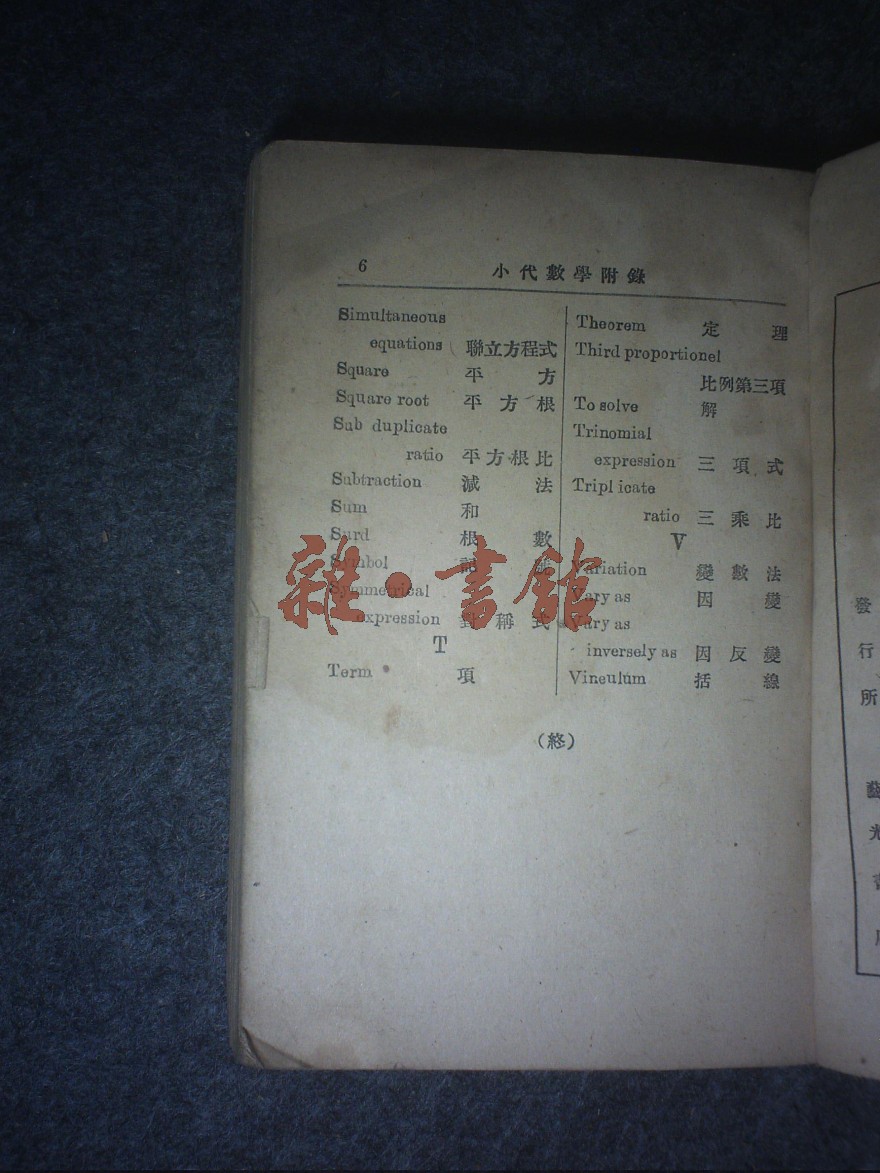 6 小代數學附錄
Simultaneous
equations 聯立方程式
Square 平方
Square root 平方根
Sub duplicate
ratio 平方根比
Subtraction 減法
Sum 和
Surd 根數
Symbol 記
Symmetrical
expression 對稱式
T
Term 項
Theorem 定理
Third proportionel
比例第三項
To solve 解
Trinomial
expression 三項式
Tripl icate
ratio 三乘比
V
Variation 變數法
Vary as 因變
Vary as
inversely as 因反變
Vinculum 括線
(終)
雜·書館
發行所
藝光書